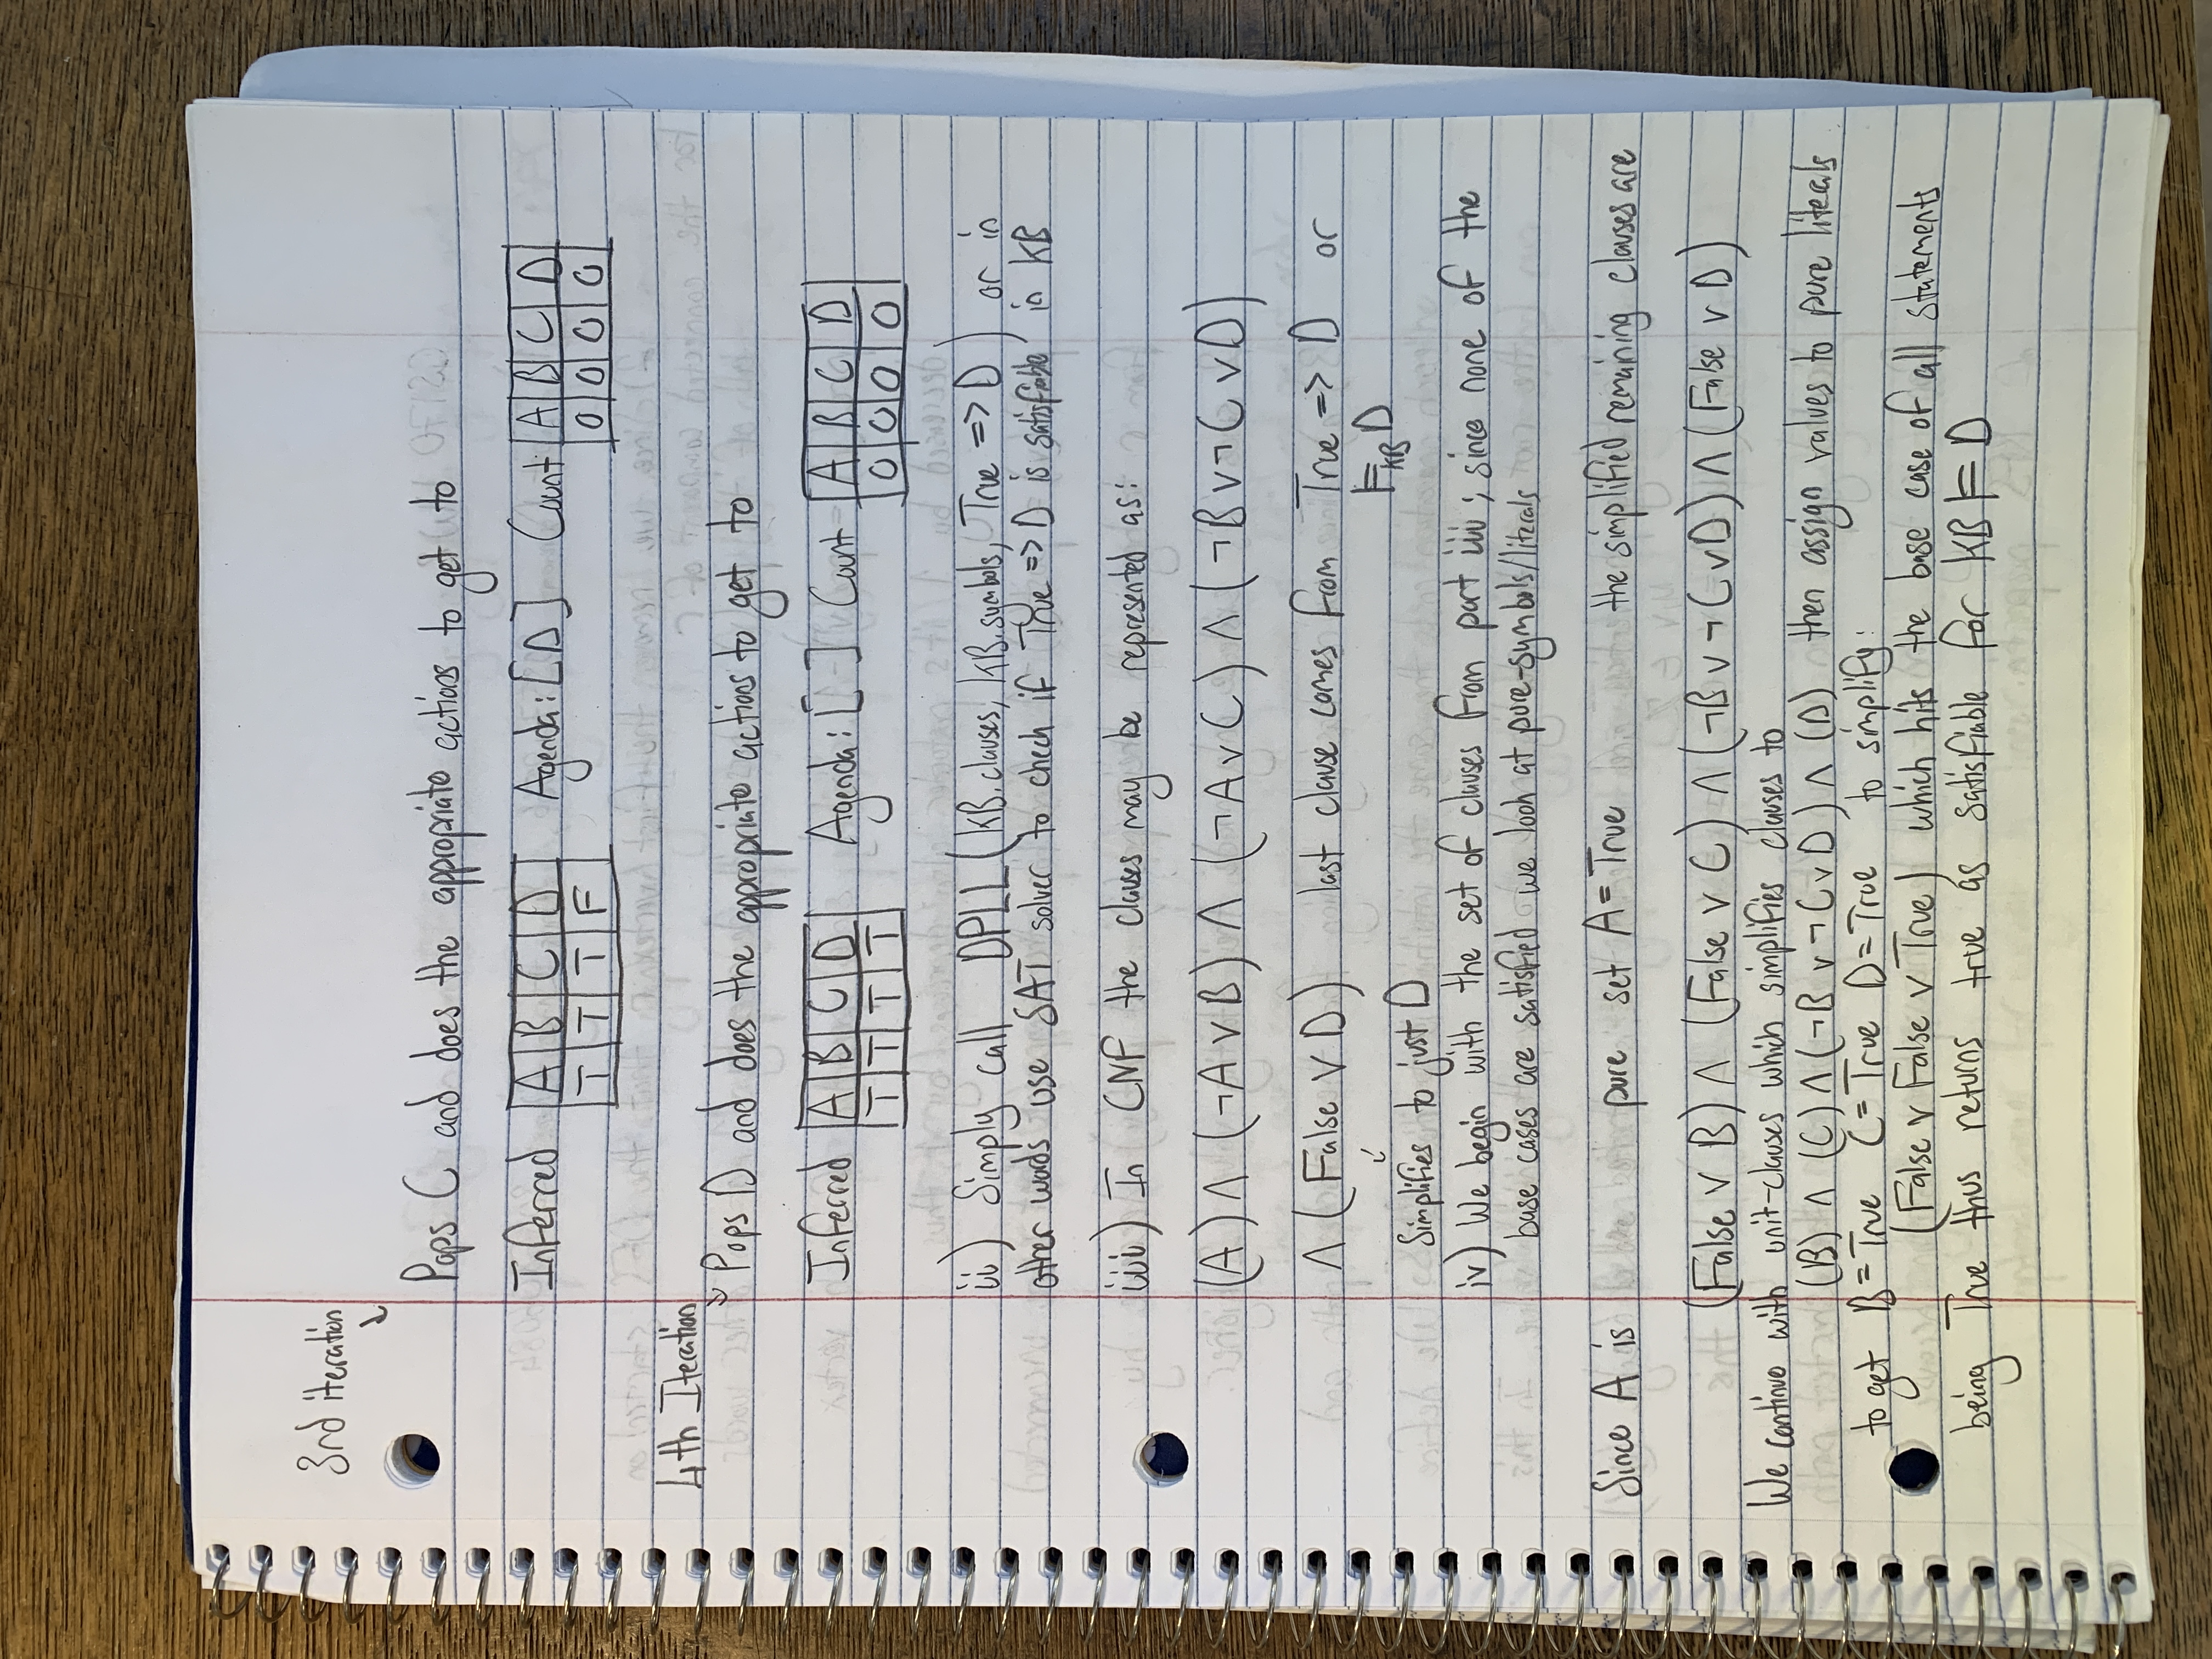 3rd iteration
↓
Pops C and does the appropriate actions to get to
Inferred A B C D Agenda: [D] Count A B C D
T T T F 0 0 0 0
4th Iteration
Pops D and does the appropriate actions to get to
Inferred A B C D Agenda: [ ] Count A B C D
T T T T 0 0 0 0
ii) Simply call DPLL(KB.clauses, KB.symbols, True => D) or in
other words use SAT solver to check if True => D is satisfiable in KB
iii) In CNF the clauses may be represented as:
(A) ∧ (¬A ∨ B) ∧ (¬A ∨ C) ∧ (¬B ∨ ¬C ∨ D)
∧ (False ∨ D) last clause comes from True => D or
⊨KB D
Simplifies to just D
iv) We begin with the set of clauses from part iii; since none of the
base cases are satisfied we look at pure-symbols/literals
Since A is pure set A = True the simplified remaining clauses are
(False ∨ B) ∧ (False ∨ C) ∧ (¬B ∨ ¬C ∨ D) ∧ (False ∨ D)
We continue with unit-clauses which simplifies clauses to
(B) ∧ (C) ∧ (¬B ∨ ¬C ∨ D) ∧ (D) then assign values to pure literals
to get B = True C = True D = True to simplify:
(False ∨ False ∨ True) which hits the base case of all statements
being True thus returns true as satisfiable for KB ⊨ D